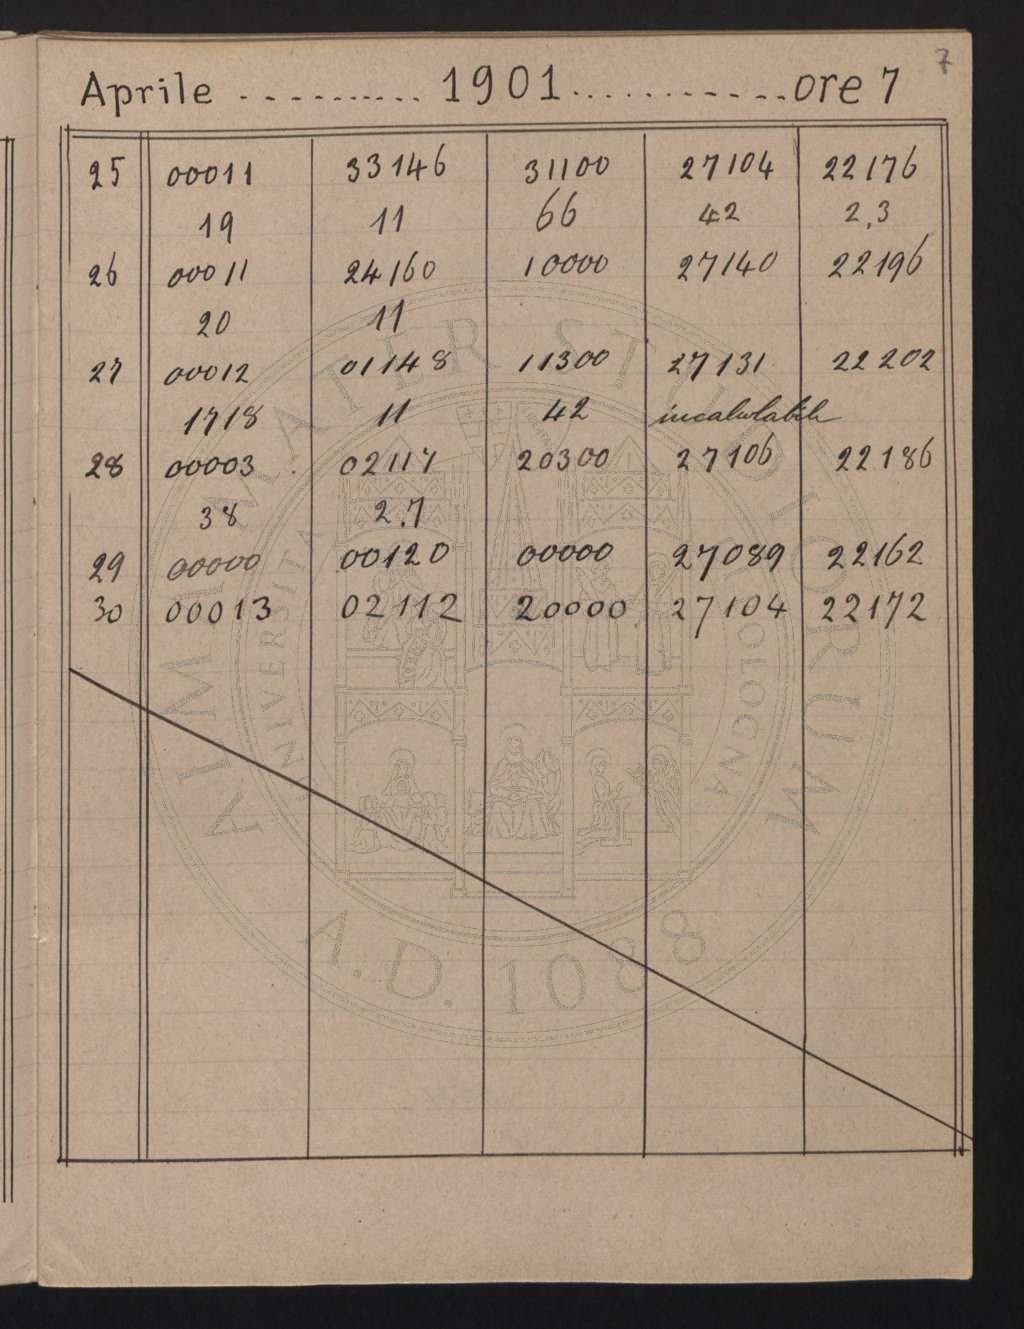 7
Aprile .......... 1901 ............ ore 7
25 00011 33146 31100 27104 22176
19 11 66 42 2.3
26 00011 24160 10000 27140 22196
20 11
27 00012 01148 11300 27131 22202
1718 11 42 incalcolabile
28 00003 02117 20300 27106 22186
38 2.7
29 00000 00120 00000 27089 22162
30 00013 02112 20000 27104 22172
ALMA MATER STUDIORUM
UNIVERSITÀ DI BOLOGNA
A.D. 1088